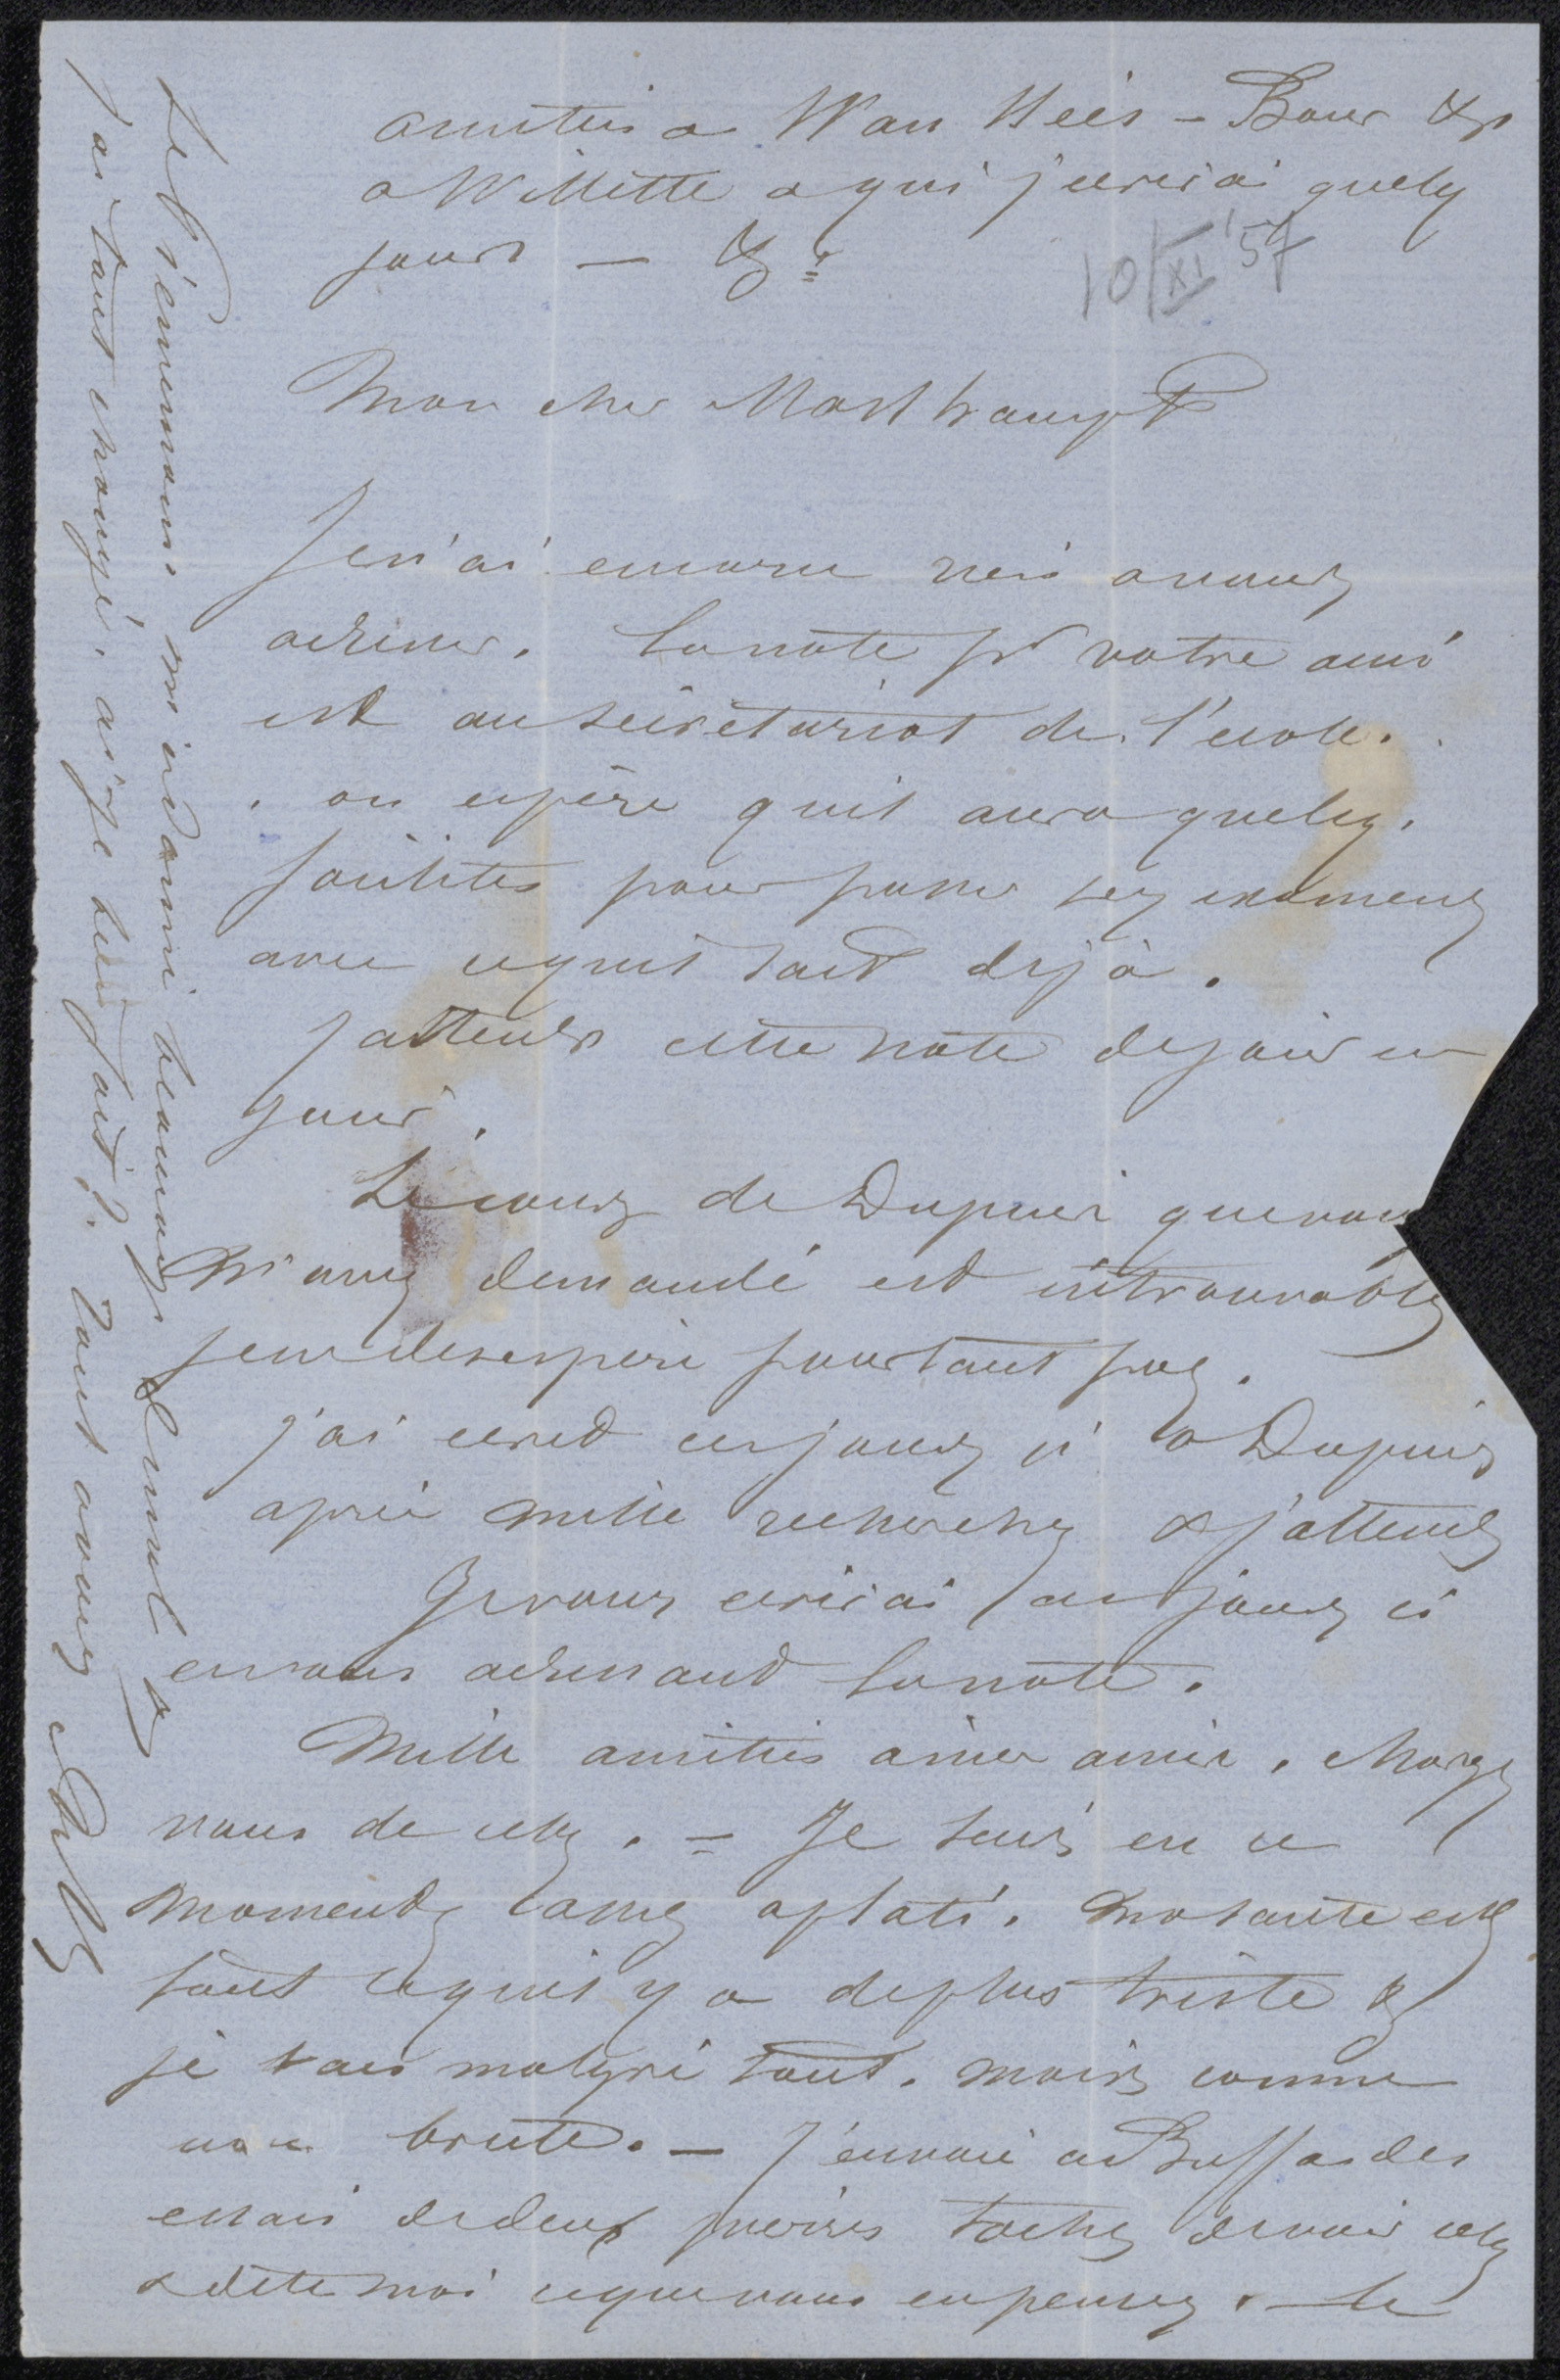 amities a Wan Hees – Bour &
a Willette a qui j'ecrirai quelq
jours – &
10/XI '57
Mon cher Mosthaupt
Je n'ai encore rien a vous
adresser. La note pr votre ami
est au secretariat de l'ecole.
on espère quil aura quelq.
facilités pour passer ses examens
avec ce quil sait dejà.
J'attends cette note de jour en
jour.
Le cours de Dupuis que vous
m'avez demandé est introuvable
je ne desespère pourtant pas.
j'ai ecrit ces jours ci a Dupuis
après mille recherches & j'attends
Je vous ecrirai ces jours ci
en vous adressant la note.
Mille amitiés a nos amis. Charge
vous de cela. – Je suis en ce
moment assez aplati. ma santé est
tout ce quil y a de plus triste &
je vais malgré tout. mais comme
une brute. – J'envoie a Buffa des
essais de deux pierres tachez de voir cela
& dite moi ce que vous en pensez. – Le
Lef. s'ennemami m'a donné beaucoup d'ennuis &
j'ai tout changé. ai-je bien fait? tout a vous